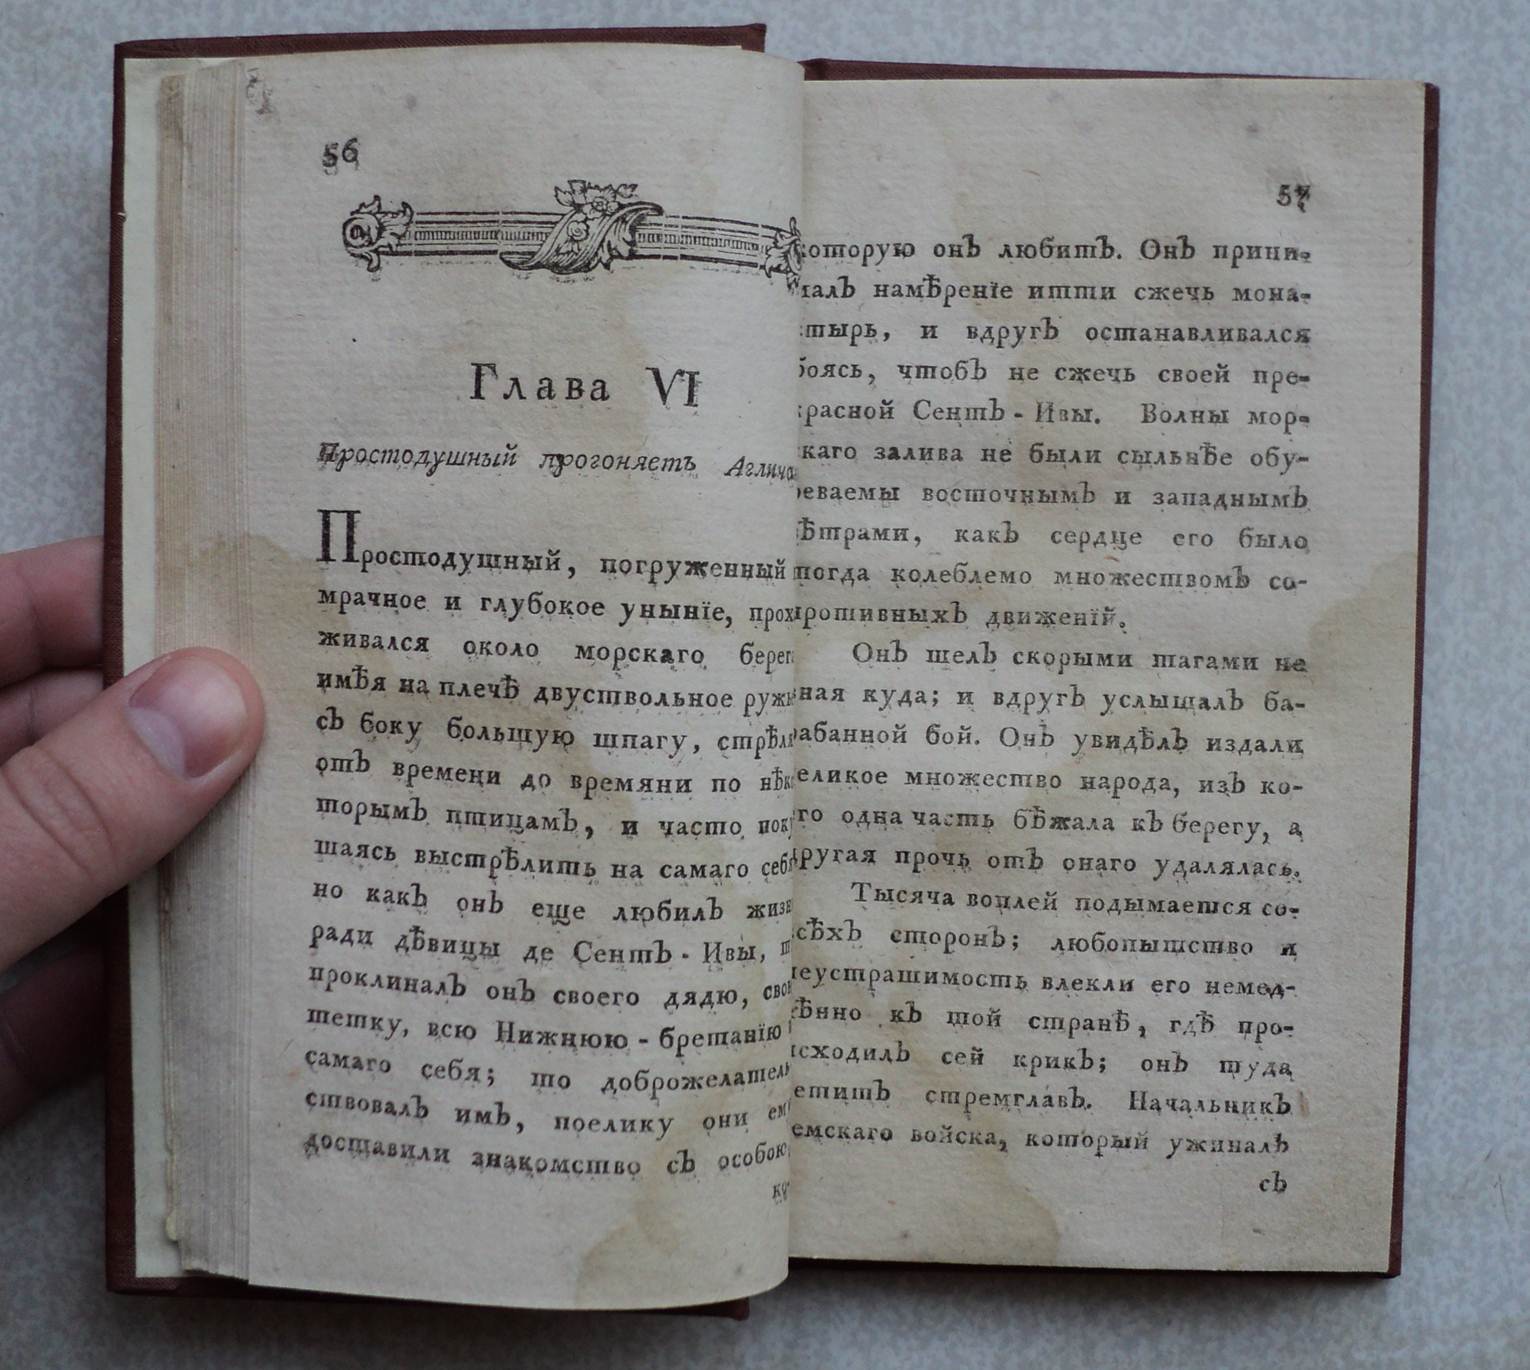 56
Глава VI
Простодушный прогоняетъ
Простодушный, погруженный
мрачное и глубокое унынїе,
живался около морскаго
имѣя на плечѣ двуствольное
съ боку большую шпагу,
отъ времени до времяни по
торымъ птицамъ, и часто
шаясь выстрѣлить на самаго
но какъ онъ еще любилъ
ради дѣвицы де Сентъ - Ивы,
проклиналъ онъ своего дядю,
тетку, всю Нижнюю - бретанїю
самаго себя; то
ствовалъ имъ, поелику они
доставили знакомство съ
57
которую онъ любитъ. Онъ прини-
малъ намѣренїе итти сжечь мона-
стырь, и вдругъ останавливался
боясь, чтобъ не сжечь своей пре-
красной Сентъ - Ивы. Волны мор-
скаго залива не были сыльнѣе обу-
реваемы восточнымъ и западнымъ
вѣтрами, какъ сердце его было
тогда колеблемо множествомъ со-
противныхъ движенїй.
Онъ шелъ скорыми шагами не
зная куда; и вдругъ услышалъ ба-
рабанной бой. Онъ увидѣлъ издали
великое множество народа, изъ ко-
его одна часть бѣжала къ берегу, а
другая прочь отъ онаго удалялась.
Тысяча воплей подымается со-
всѣхъ сторонъ; любопытство и
неустрашимость влекли его немед-
лѣнно къ той странѣ, гдѣ про-
исходилъ сей крикъ; онъ туда
летитъ стремглавъ. Начальникъ
земскаго войска, который ужиналъ
съ